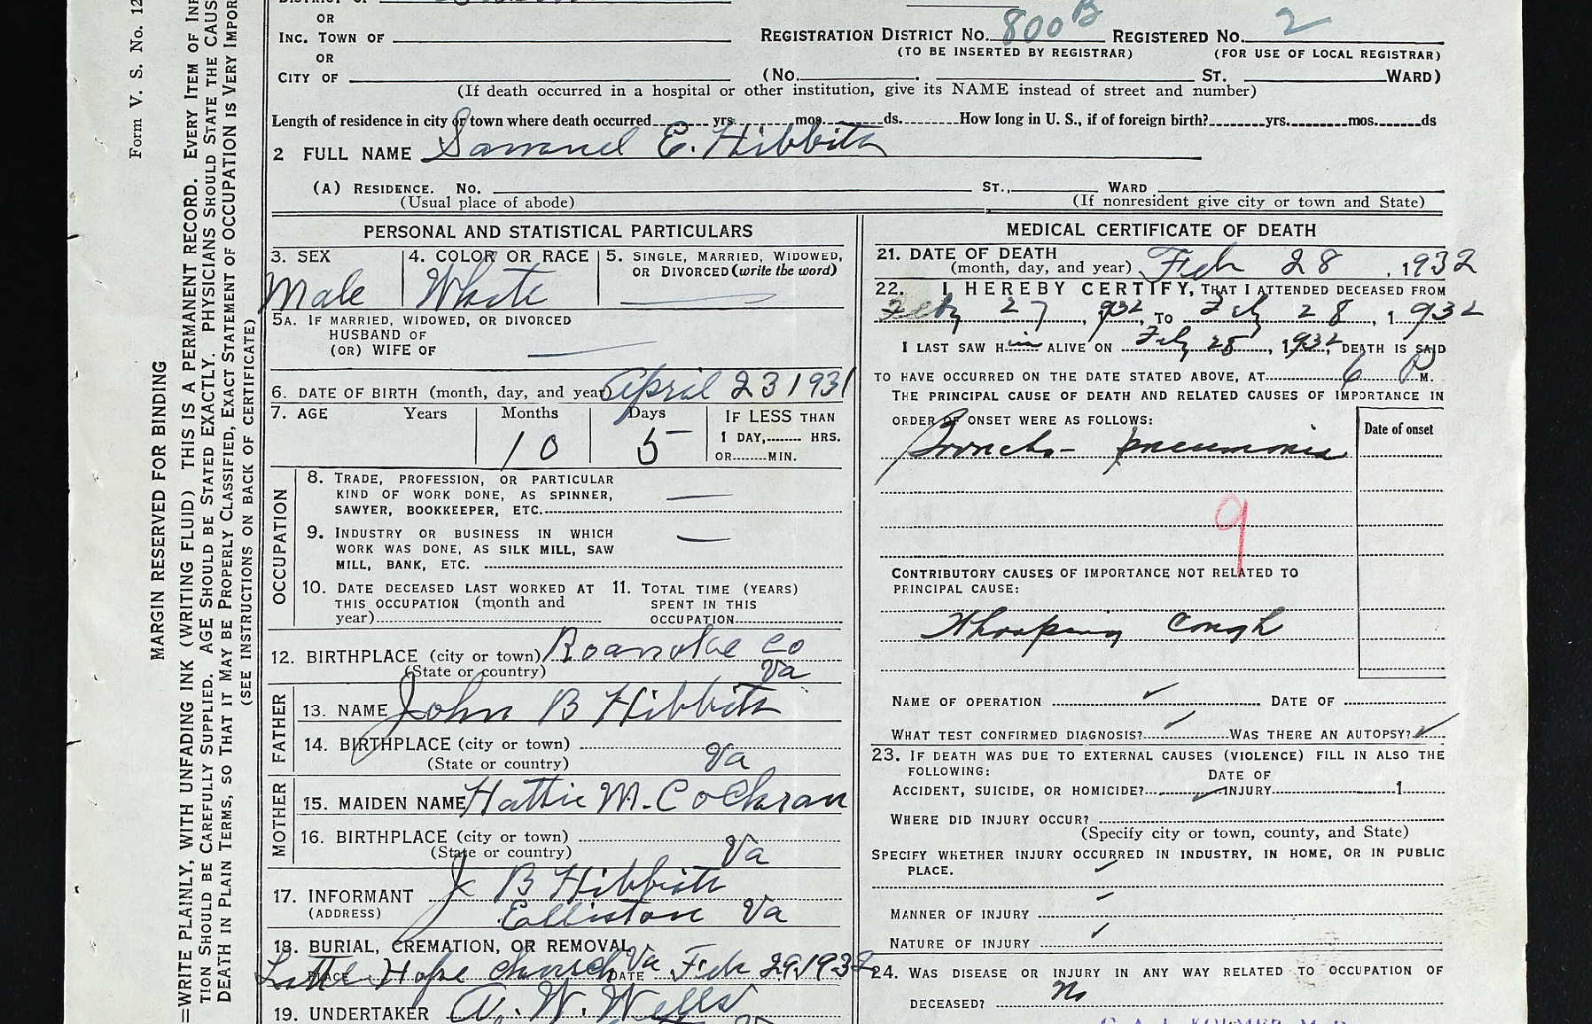 OR
INC. TOWN OF
REGISTRATION DISTRICT No. 800B REGISTERED No. 2
OR
(TO BE INSERTED BY REGISTRAR) (FOR USE OF LOCAL REGISTRAR)
CITY OF (No. ST. WARD)
(If death occurred in a hospital or other institution, give its NAME instead of street and number)
Length of residence in city or town where death occurred yrs. mos. ds. How long in U. S., if of foreign birth? yrs. mos. ds
2 FULL NAME Samuel E. Hibbitts
(A) RESIDENCE. No. ST., WARD
(Usual place of abode) (If nonresident give city or town and State)
PERSONAL AND STATISTICAL PARTICULARS
3. SEX
Male
4. COLOR OR RACE
White
5. SINGLE, MARRIED, WIDOWED,
OR DIVORCED (write the word)
5A. IF MARRIED, WIDOWED, OR DIVORCED
HUSBAND OF
(OR) WIFE OF
6. DATE OF BIRTH (month, day, and year) April 23 1931
7. AGE Years Months Days IF LESS THAN
10 5 1 DAY, HRS.
OR MIN.
OCCUPATION
8. TRADE, PROFESSION, OR PARTICULAR
KIND OF WORK DONE, AS SPINNER,
SAWYER, BOOKKEEPER, ETC.
9. INDUSTRY OR BUSINESS IN WHICH
WORK WAS DONE, AS SILK MILL, SAW
MILL, BANK, ETC.
10. DATE DECEASED LAST WORKED AT
THIS OCCUPATION (month and
year)
11. TOTAL TIME (YEARS)
SPENT IN THIS
OCCUPATION
12. BIRTHPLACE (city or town) Roanoke Co
(State or country) Va
FATHER
13. NAME John B Hibbitts
14. BIRTHPLACE (city or town)
(State or country) Va
MOTHER
15. MAIDEN NAME Hattie M. Cochran
16. BIRTHPLACE (city or town)
(State or country) Va
17. INFORMANT J B Hibbitts
(ADDRESS) Elliston Va
18. BURIAL, CREMATION, OR REMOVAL
PLACE Little Hope Church Va DATE Feb 29, 1932
19. UNDERTAKER A. W. Wells
MEDICAL CERTIFICATE OF DEATH
21. DATE OF DEATH
(month, day, and year) Feb 28, 1932
22. I HEREBY CERTIFY, THAT I ATTENDED DECEASED FROM
Feby 27, 1932, TO Feby 28, 1932
I LAST SAW Him ALIVE ON Feby 28, 1932, DEATH IS SAID
TO HAVE OCCURRED ON THE DATE STATED ABOVE, AT 6 P M.
THE PRINCIPAL CAUSE OF DEATH AND RELATED CAUSES OF IMPORTANCE IN
ORDER OF ONSET WERE AS FOLLOWS:
Date of onset
Broncho- pneumonia
9
CONTRIBUTORY CAUSES OF IMPORTANCE NOT RELATED TO
PRINCIPAL CAUSE:
Whooping Cough
NAME OF OPERATION DATE OF
WHAT TEST CONFIRMED DIAGNOSIS? WAS THERE AN AUTOPSY?
23. IF DEATH WAS DUE TO EXTERNAL CAUSES (VIOLENCE) FILL IN ALSO THE
FOLLOWING:
DATE OF
ACCIDENT, SUICIDE, OR HOMICIDE? INJURY 1
WHERE DID INJURY OCCUR?
(Specify city or town, county, and State)
SPECIFY WHETHER INJURY OCCURRED IN INDUSTRY, IN HOME, OR IN PUBLIC
PLACE.
MANNER OF INJURY
NATURE OF INJURY
24. WAS DISEASE OR INJURY IN ANY WAY RELATED TO OCCUPATION OF
DECEASED? No
Form V. S. No. 12
MARGIN RESERVED FOR BINDING
WRITE PLAINLY, WITH UNFADING INK (WRITING FLUID) THIS IS A PERMANENT RECORD. EVERY ITEM OF
TION SHOULD BE CAREFULLY SUPPLIED. AGE SHOULD BE STATED EXACTLY. PHYSICIANS SHOULD STATE THE
DEATH IN PLAIN TERMS, SO THAT IT MAY BE PROPERLY CLASSIFIED, EXACT STATEMENT OF OCCUPATION IS VERY
(SEE INSTRUCTIONS ON BACK OF CERTIFICATE)